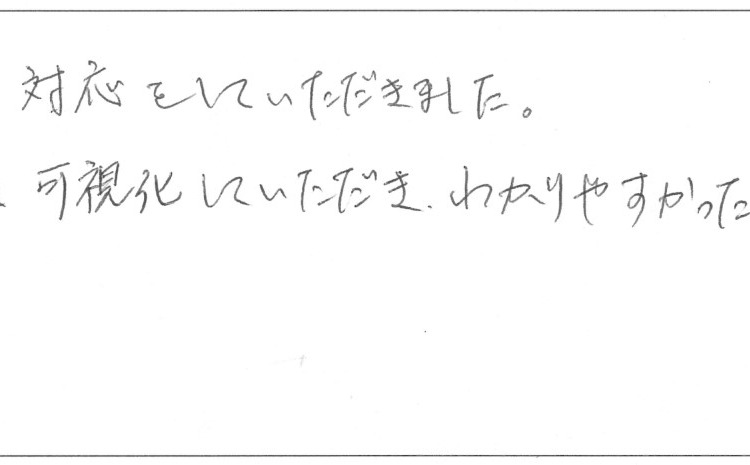 対応をしていただきました。
可視化していただき、わかりやすかった